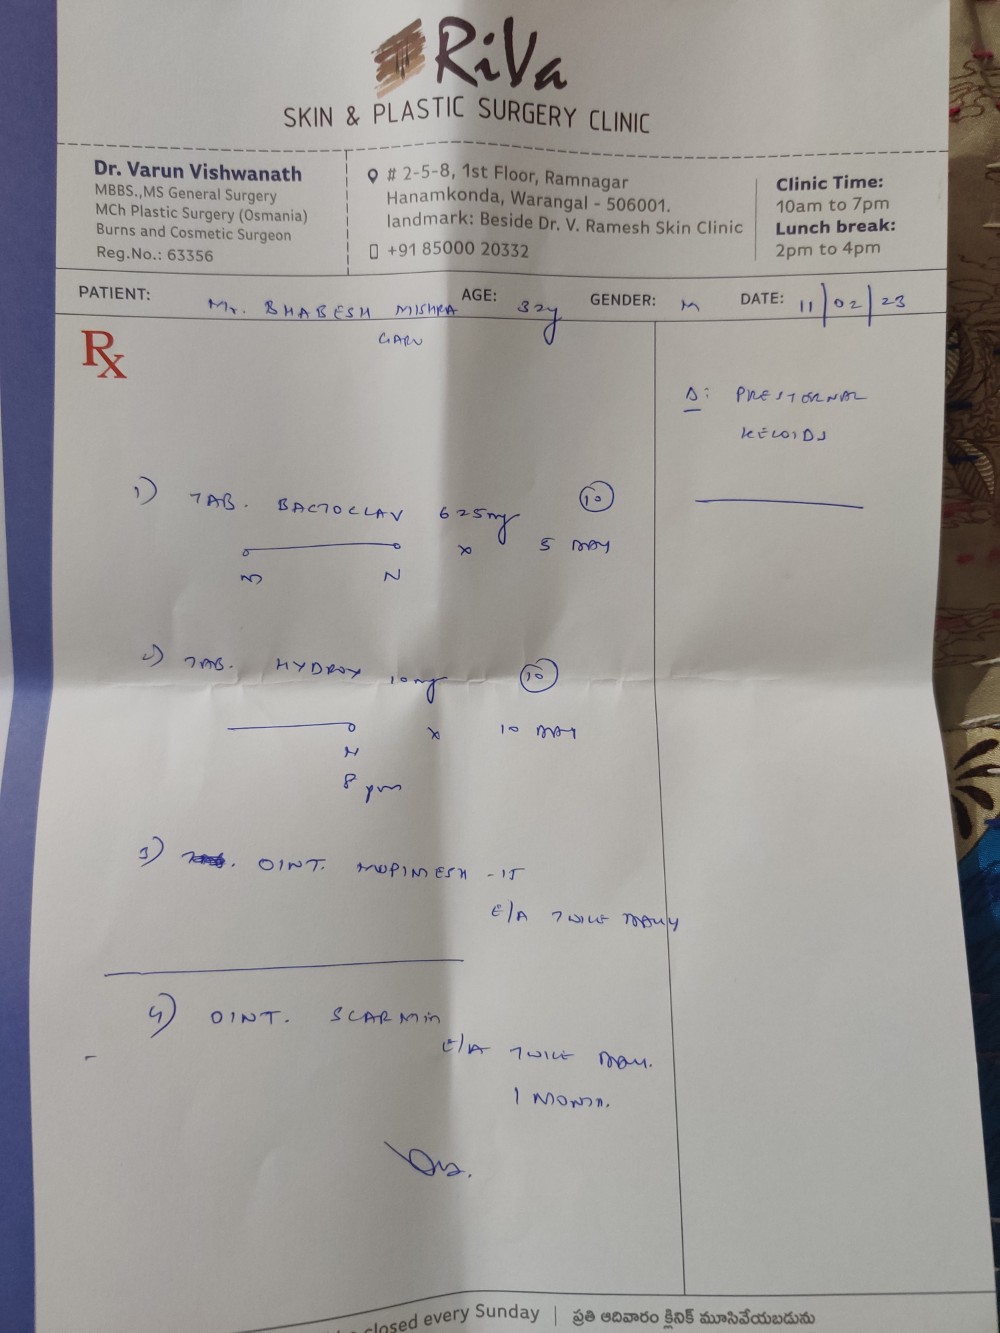 RiVa
SKIN & PLASTIC SURGERY CLINIC
Dr. Varun Vishwanath
MBBS.,MS General Surgery
MCh Plastic Surgery (Osmania)
Burns and Cosmetic Surgeon
Reg.No.: 63356
# 2-5-8, 1st Floor, Ramnagar
Hanamkonda, Warangal - 506001.
landmark: Beside Dr. V. Ramesh Skin Clinic
+91 85000 20332
Clinic Time:
10am to 7pm
Lunch break:
2pm to 4pm
PATIENT: Mr. BHABESH MISHRA AGE: 32y GENDER: M DATE: 11/02/23
GARU
Rx
Δ: PRESTERNAL
KELOIDS
1) TAB. BACTOCLAV 625mg 10
x 5 DAY
M N
2) TAB. HYDROX 10mg 10
x 10 DAY
N
8 pm
3) OINT. MUPIMESH - 15
E/A TWICE DAILY
4) OINT. SCARMin
E/A TWICE DAILY.
1 MONTH.
closed every Sunday | ప్రతి ఆదివారం క్లినిక్ మూసివేయబడును